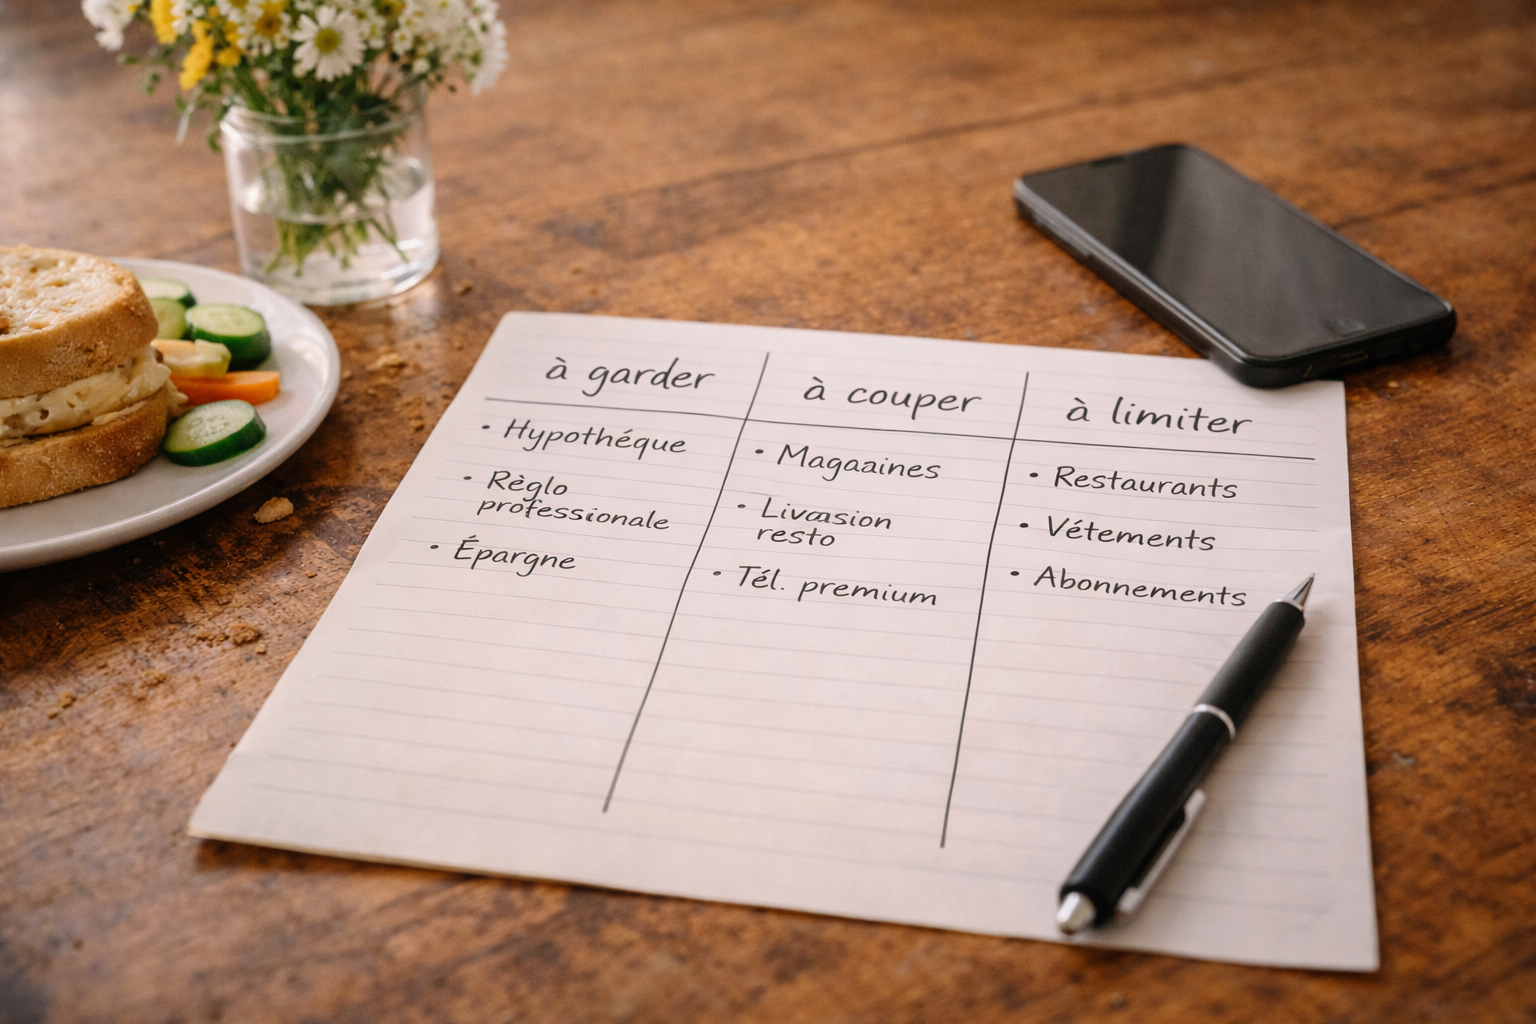 à garder
• Hypothéque
• Règlo
professionale
• Épargne
à couper
• Magaaines
• Livasion
resto
• Tél. premium
à limiter
• Restaurants
• Vétements
• Abonnements